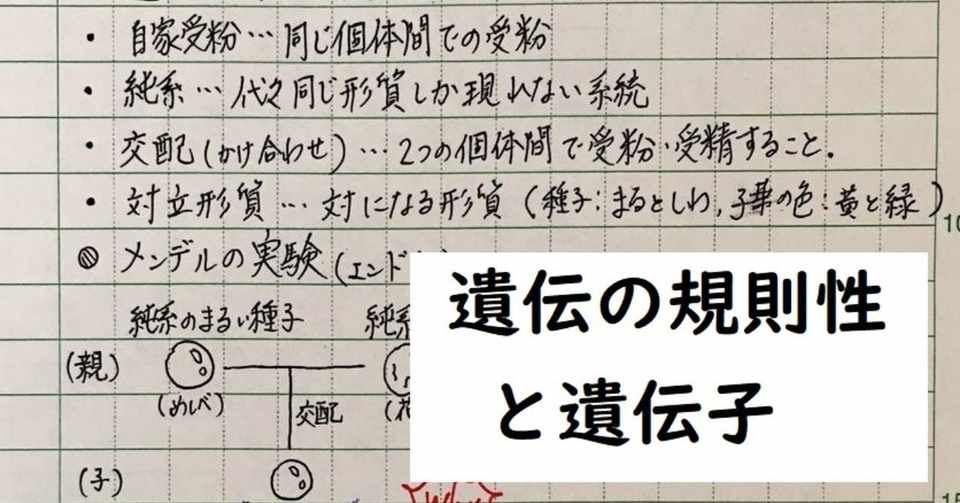 ・自家受粉…同じ個体間での受粉
・純系…代々同じ形質しか現れない系統
・交配(かけ合わせ)…2つの個体間で受粉・受精すること.
・対立形質…対になる形質(種子:まるとしわ,子葉の色:黄と緑)
10
◎メンデルの実験(エンド
純系のまるい種子 純系
(親)
(めしべ) 交配 (花
(子)
15
遺伝の規則性
と遺伝子